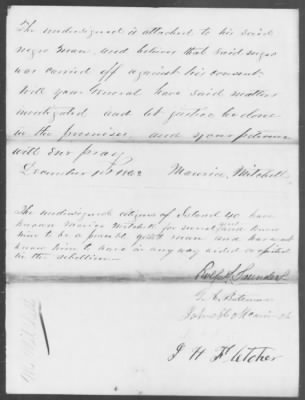 The undersigned is attached to his said
negro man, and believes that said negro
was carried off against his consent.
Will your General have said matters
investigated and let justice be done
in the premises and your petitioner
will ever pray
December 1862 Maurice Mitchell
The undersigned citizens of Island No have
known Maurice Mitchell for several and know
him to be a peaceable quiet man and have not
known him to have in any way aided or assisted
in the rebellion
Saunders
G. Bateman
John
J H Fletcher